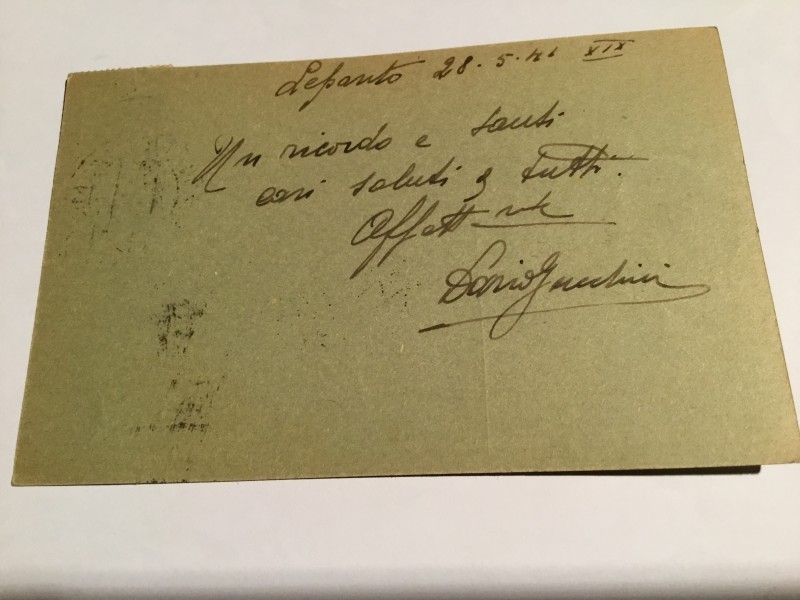 Lepanto 28.5.41 XIX
Un ricordo e tanti
cari saluti a tutti.
Affett-nte
Dario